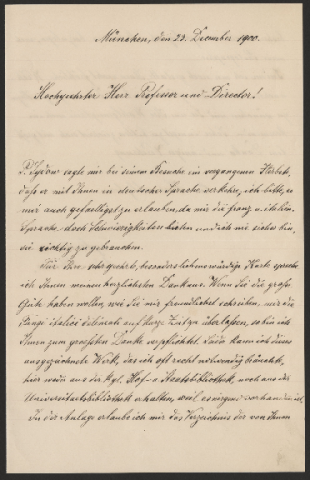 München, den 23. December 1900.
Hochgeehrter Herr Professor und Director!
P. Sydow sagte mir bei seinem Besuche im vergangenen Herbst,
dass er mit Ihnen in deutscher Sprache verkehre, ich bitte, es
mir auch gefälligst zu erlauben, da mir die franz. u. italien.
Sprache, doch Schwierigkeiten bieten und ich mir sicher bin,
sie richtig zu gebrauchen.
Für Ihre sehr geehrte, besonders liebenswürdige Karte spreche
ich Ihnen meinen herzlichsten Dank aus. Wenn Sie die große
Güte haben wollen, wie Sie mir freundlichst schreiben, mir die
Fungi italici auf kurze Zeit zu überlassen, so bin ich
Ihnen zum grössten Danke verpflichtet. Leider kann ich dieses
ausgezeichnete Werk, das ich oft recht nothwendig bräuchte,
hier weder aus der Kgl. Hof- u. Staatsbibliothek, noch aus der
Universitätsbibliothek erhalten, weil es nirgends vorhanden ist.
In der Anlage erlaube ich mir das Verzeichniss der von Ihnen